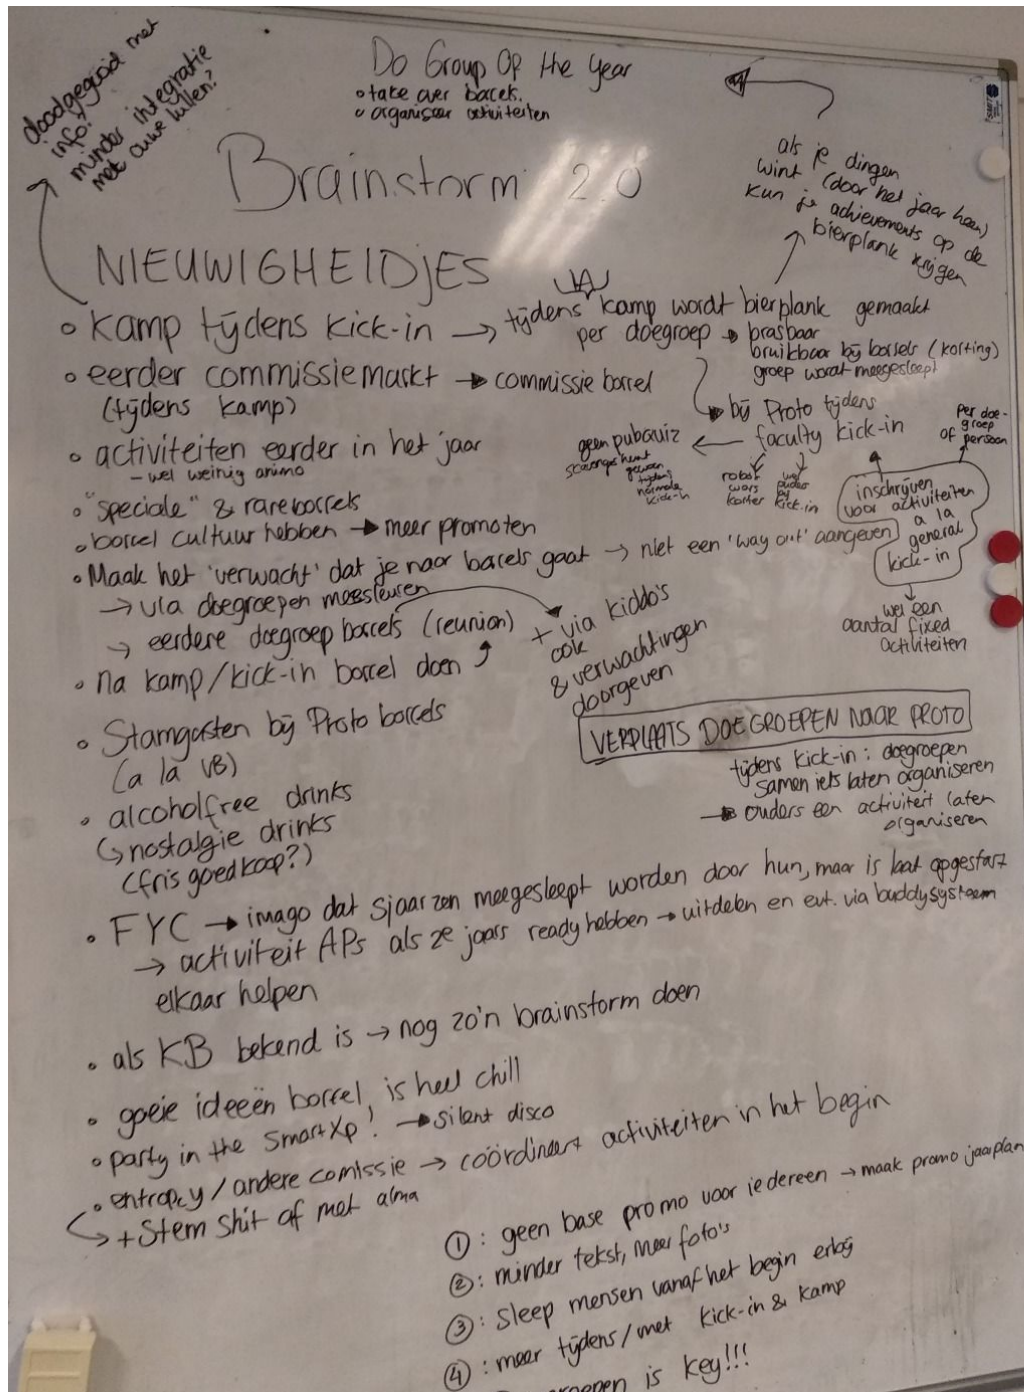 doodgegooid met
info?
minder integratie
met ouwe lullen?
Do Group Of the Year
• take over borrels.
• organiseer activiteiten
als je dingen
wint (door het jaar heen)
kun je achievements op de
bierplank krijgen
Brainstorm 2.0
NIEUWIGHEIDJES
• kamp tijdens kick-in → tijdens kamp wordt bierplank gemaakt
per doegroep → brasbaar
bruikbaar bij borrels (korting)
groep wordt meegesleept
• eerder commissiemarkt → commissie borrel
(tijdens kamp)
→ bij Proto tijdens
faculty kick-in
geen pubquiz
gewoon
tijdens
normale
kick-in
robot
wars
koffer
wel
ouders
bij
kick-in
per doe-
groep
of persoon
inschrijven
voor activiteiten
a la
general
kick-in
wel een
aantal fixed
activiteiten
• activiteiten eerder in het jaar
- wel weinig animo
• "speciale" & rare borrels
• borrel cultuur hebben → meer promoten
• Maak het 'verwacht' dat je naar borrels gaat → niet een 'way out' aangeven
→ via doegroepen meesleuren
→ eerdere doegroep borrels (reunion)
+ via kiddo's
ook
& verwachtingen
doorgeven
• na kamp/kick-in borrel doen
• Stamgasten bij Proto borrels
(a la VB)
VERPLAATS DOEGROEPEN NAAR PROTO
tijdens kick-in: doegroepen
samen iets laten organiseren
→ ouders een activiteit laten
organiseren
• alcoholfree drinks
↳ nostalgie drinks
(fris goedkoop?)
• FYC → imago dat sjaarzen meegesleept worden door hun, maar is laat opgestart
→ activiteit APs als ze jaars ready hebben → uitdelen en evt. via buddysysteem
elkaar helpen
• als KB bekend is → nog zo'n brainstorm doen
• goeie ideeën borrel, is heel chill
• party in the SmartXp! → silent disco
• entropy / andere comissie → coördineert activiteiten in het begin
↳ + Stem shit af met alma
①: geen base promo voor iedereen → maak promo jaarplan
②: minder tekst, meer foto's
③: sleep mensen vanaf het begin erbij
④: meer tijdens/met kick-in & kamp
is key!!!